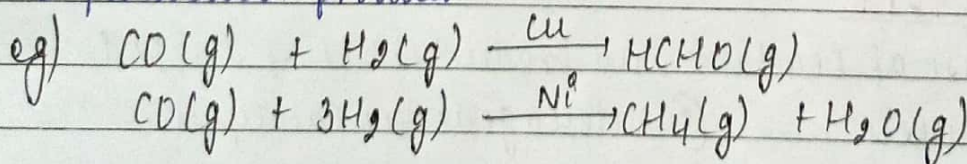 eg) CO(g) + H₂(g) —Cu→ HCHO(g)
CO(g) + 3H₂(g) —Ni→ CH₄(g) + H₂O(g)